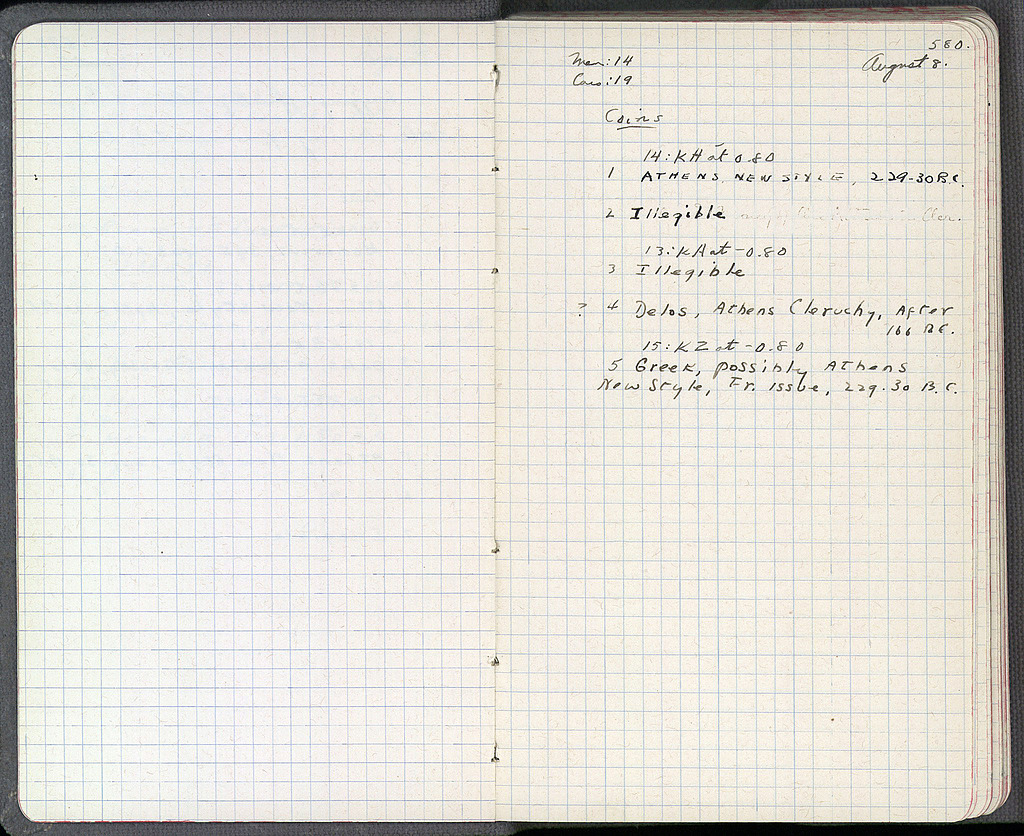 580.
Men: 14
August 8.
Cars: 19
Coins
14: KH at 0.80
1 ATHENS, NEW STYLE, 229-30 B.C.
2 Illegible
13: KA at -0.80
3 Illegible
? 4 Delos, Athens Cleruchy, After
166 BC.
15: KZ at -0.80
5 Greek, possibly Athens
New Style, Fr. issue, 229-30 B.C.